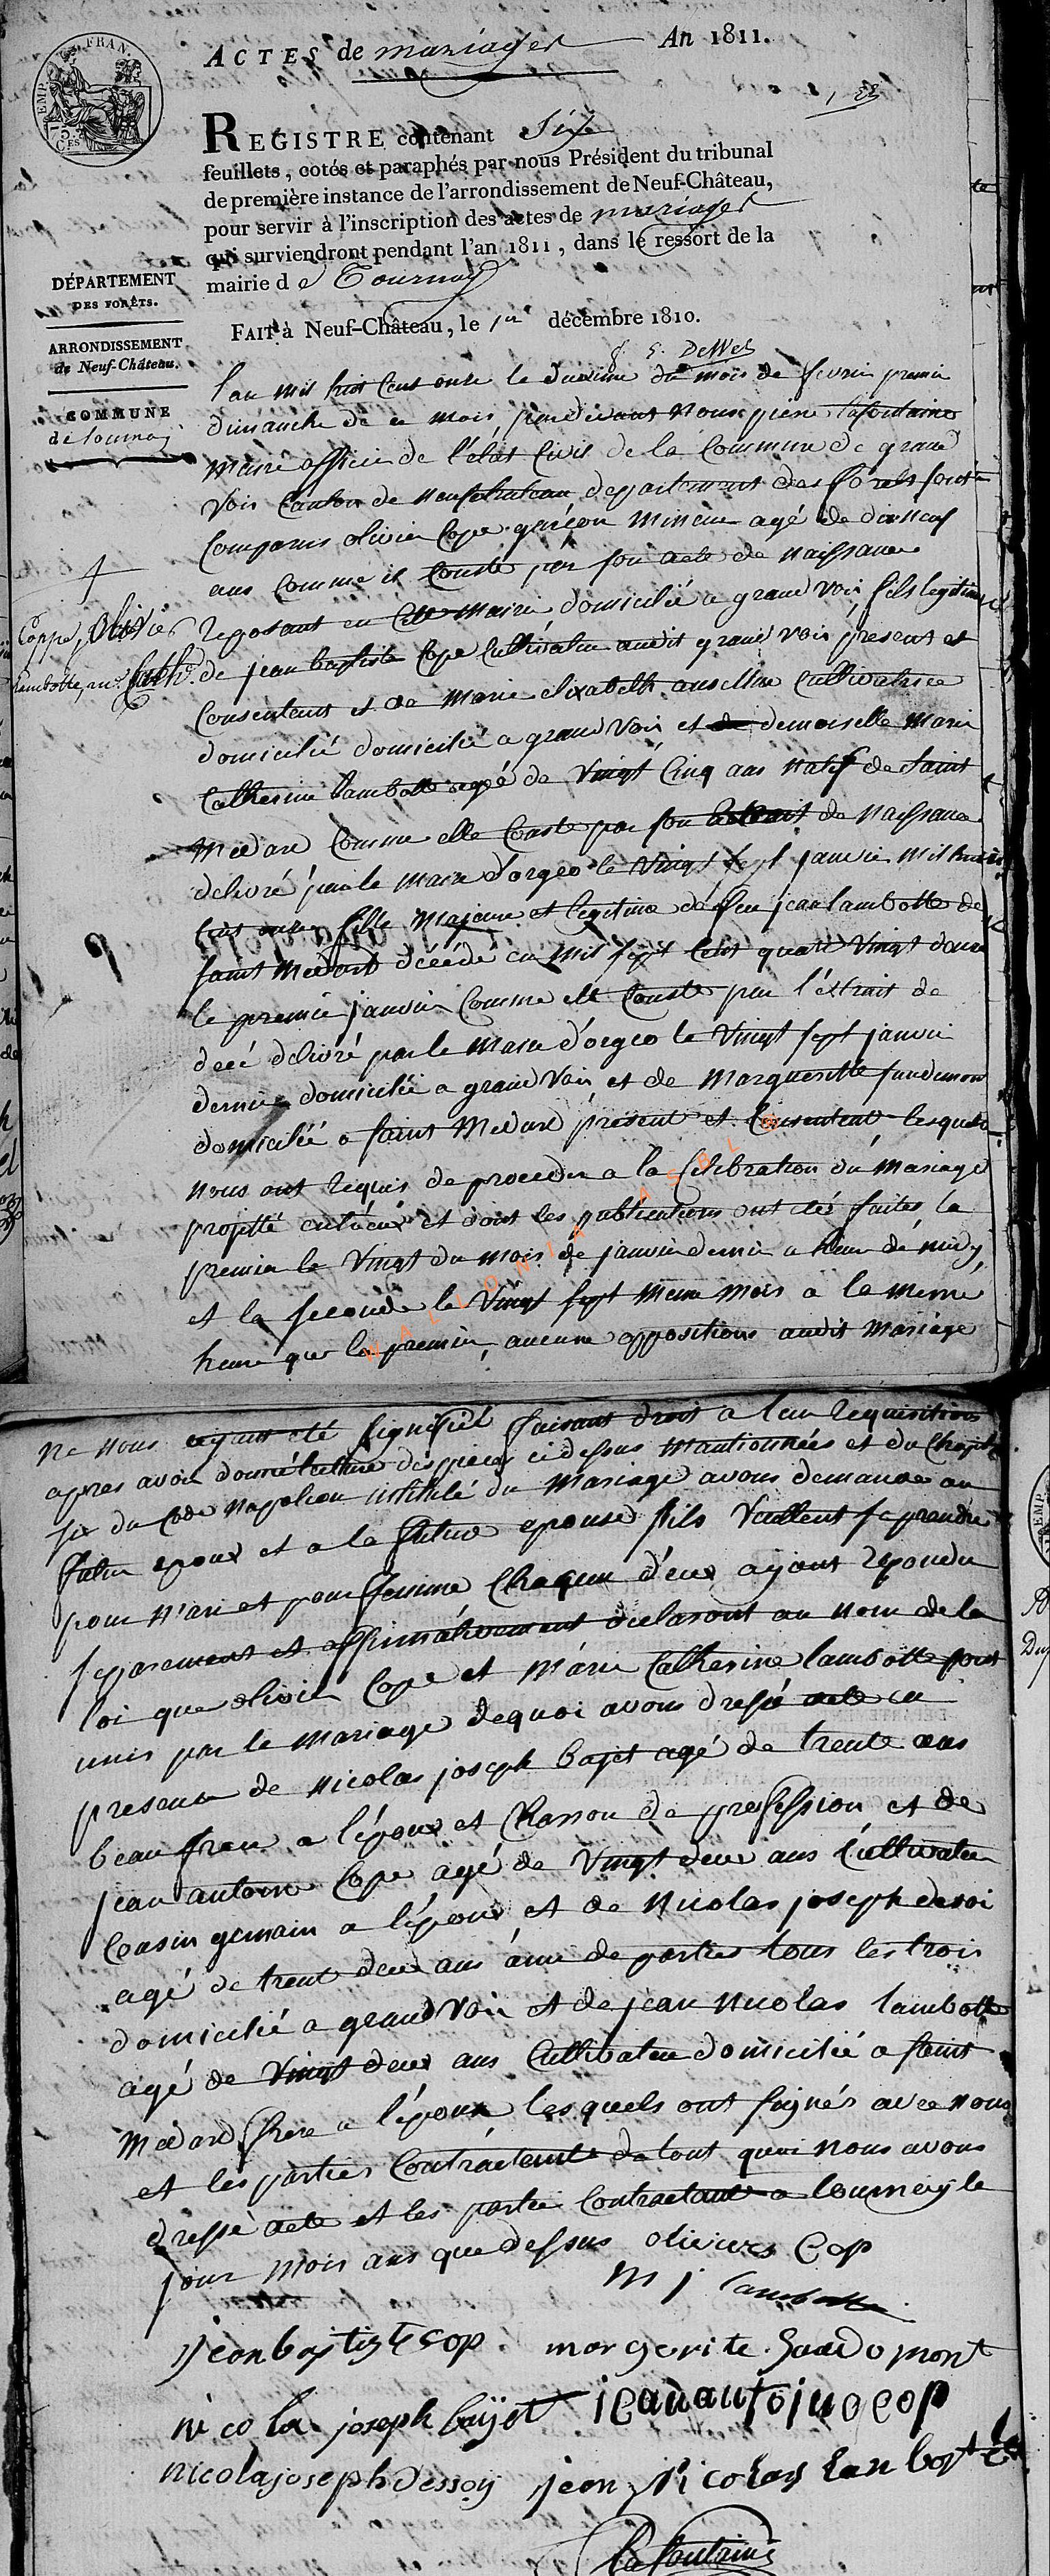 ACTES de mariages An 1811.
EMP. FRAN.
75.
CES
REGISTRE contenant Six
feuillets, cotés et paraphés par nous Président du tribunal
de première instance de l'arrondissement de Neuf-Château,
pour servir à l'inscription des actes de mariages
qui surviendront pendant l'an 1811, dans le ressort de la
mairie de Tournay
DÉPARTEMENT
DES FORÊTS.
ARRONDISSEMENT
de Neuf-Château.
COMMUNE
de tournay
FAIT à Neuf-Château, le 1er décembre 1810.
l'an mil huit Cent onze le du mois de fevrier premier
dimanche de ce mois pardevant Nous pierre lafontaine
Maire officier de l'état Civil de la Commune de grand
Voir Canton de neufchateau departement des forêts sont
Comparus olivier Cope garçon Mineur agé de dixneuf
ans Comme il Conste par son acte de naissance
Coppe, Olivier
reposant en Cette Mairie domicilié a grand Voir fils legitime
Lambotte, m. Cath.
de jean baptiste Cope Cultivateur audit grand Voir present et
Consentent et de Marie elisabeth anselme Cultivatrice
domicilié domicilié a grand Voir et demoiselle Marie
Catherine lambotte agé de Vingt Cinq ans natif de Saint
Medard Comme elle Conste par son de naissance
delivré par le Maire d'orgeo le Vingt sept janvier Mil huit
Cent onze fille Majeure et legitime de feu jean lambotte de
saint Medard décédé en Mil sept Cent quatre Vingt douze
le premier janvier Comme elle Conste par l'extrait de
decé delivré par le Maire d'orgeo le Vingt sept janvier
dernier domicilié a grand Voir et de Margueritte
domicilié a saint Medard present et Consentent lesquels
nous ont requis de proceder a la Celebration du Mariage
projetté entreux et dont les publications ont été faites la
premier le Vingt du mois de janvier dernier a heur de midy
et la seconde le Vingt sept meme mois a la meme
heure que la premier, aucune oppositions audit Mariage
WALLONIA ASBL
ne nous ayant eté signifié faisant droit a leur requisitions
apres avoir donné lecture des pieces ci dessus mantionnées et du Chapitre
six du Code Napoleon intitulé du Mariage avons demandé au
futur epoux et a la future epouse s'ils Veullent se prendre
pour Mari et pour femme Chaqun d'eux ayant repondu
separement et affirmativement declarons au nom de la
loi que olivier Cope et Marie Catherine lambotte sont
unis par le Mariage dequoi avons dressé acte en
presence de Nicolas joseph bajet agé de trente ans
beau frere a l'époux et Charron de proffession et de
jean antoine Cope agé de Vingt deux ans Cultivateur
Cousin germain a l'époux et de Nicolas joseph dessoi
agé de trent deux ans ami de parties tous les trois
domicilié a grand Voir et de jean Nicolas lambotte
agé de Vingt deux ans Cultivateur domicilié a saint
Medard frere a l'époux lesquels ont signés avec nous
et les parties Contractente de tout quoi nous avons
dressé acte et les partie Contractant a tournay le
jour mois ans que dessus oliviers Cop
M j lambotte
jeanbaptiste cop. margerite
nicola joseph baijot jeanantoine cop
nicolas joseph dessoy jean nicolas lanbotte
lafontaine